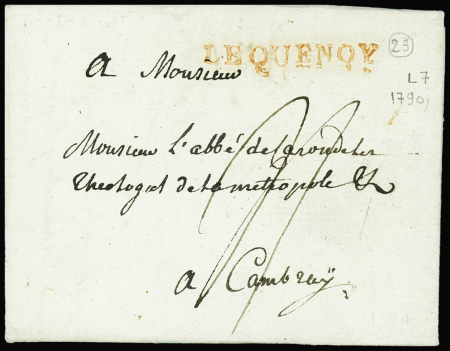 LEQUENOY 23
a Monsieur
L7
1790
Monsieur L'abbé de
theologal de la metropole &
a Cambraÿ